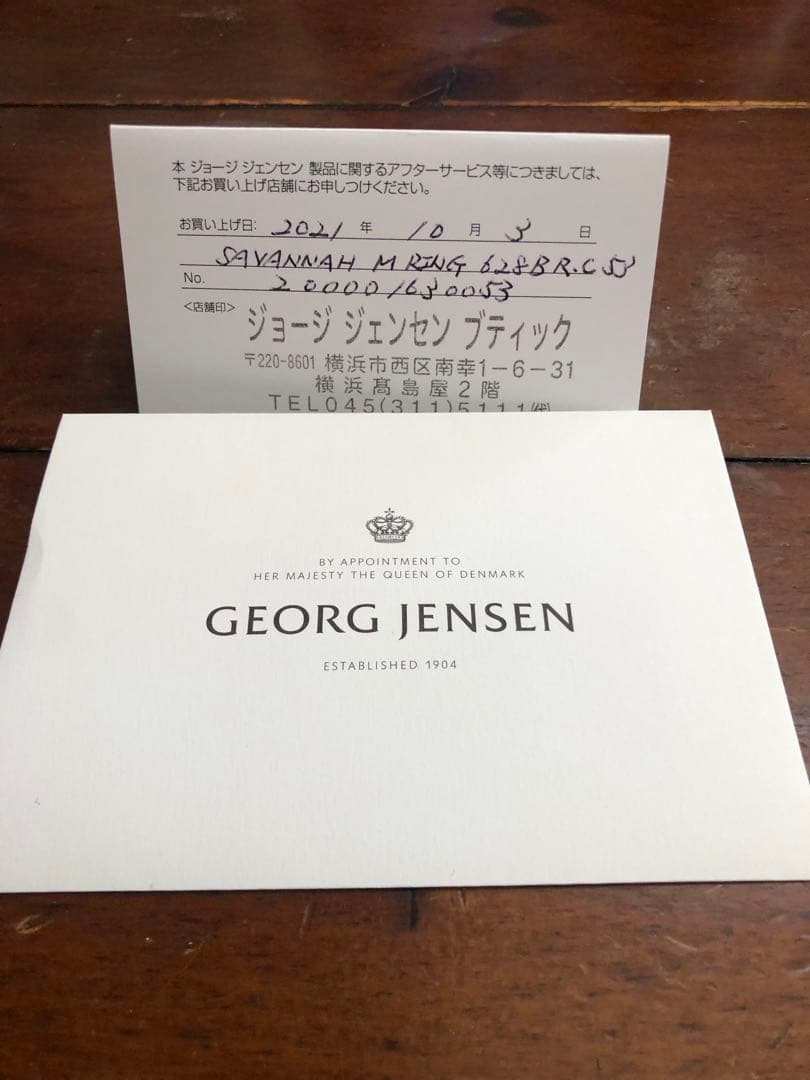 本 ジョージ ジェンセン 製品に関するアフターサービス等につきましては、
下記お買い上げ店舗にお申しつけください。
お買い上げ日: 2021 年 10 月 3 日
SAVANNAH M RING 628B R.C 53
No. 200001630053
<店舗印> ジョージ ジェンセン ブティック
〒220-8601 横浜市西区南幸1-6-31
横浜髙島屋2階
TEL045(311)5111(代)
BY APPOINTMENT TO
HER MAJESTY THE QUEEN OF DENMARK
GEORG JENSEN
ESTABLISHED 1904